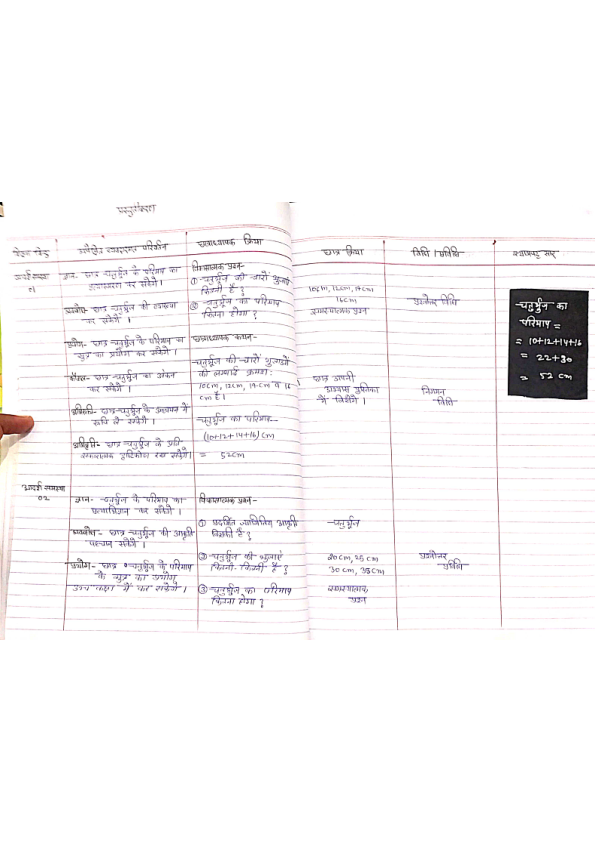 प्रस्तुतीकरण
शिक्षण बिन्दु
अपेक्षित व्यवहारगत परिवर्तन
छात्राध्यापक क्रिया
छात्र क्रिया
विधि / प्रविधि
श्यामपट्ट सार
01
ज्ञान- छात्र चतुर्भुज के परिमाप का
कर सकेंगे।
अवबोध- छात्र चतुर्भुज की व्याख्या
कर सकेंगे।
प्रयोग- छात्र चतुर्भुज के परिमाप का
सूत्र का प्रयोग कर सकेंगे।
कौशल- छात्र चतुर्भुज का अंकन
कर सकेंगे।
अभिरुचि- छात्र चतुर्भुज के अध्ययन में
रुचि ले सकेंगे।
अभिवृत्ति- छात्र चतुर्भुज के प्रति
दृष्टिकोण रख सकेंगे।
विकासात्मक प्रश्न-
① चतुर्भुज की चारों भुजाएं
कितनी हैं?
② चतुर्भुज का परिमाप
कितना होगा?
छात्राध्यापक कथन-
चतुर्भुज की चारों भुजाओं
की लम्बाई क्रमशः
10cm, 12cm, 14cm व 16
cm है।
चतुर्भुज का परिमाप-
(10+12+14+16) cm
= 52cm
10cm, 12cm, 14cm
16cm
समस्यात्मक प्रश्न
छात्र अपनी
अभ्यास पुस्तिका
में लिखेंगे।
विधि
निगमन
विधि
चतुर्भुज का
परिमाप =
= 10+12+14+16
= 22+30
= 52 cm
आदर्श समस्या
02
ज्ञान- चतुर्भुज के परिमाप का
प्रत्यभिज्ञान कर सकेंगे।
अवबोध- छात्र चतुर्भुज की आकृति
पहचान सकेंगे।
प्रयोग- छात्र चतुर्भुज के परिमाप
के सूत्र का प्रयोग
उच्च कक्षा में कर सकेंगे।
विकासात्मक प्रश्न-
① प्रदर्शित ज्यामितीय आकृति
किसकी है?
② चतुर्भुज की भुजाएं
कितनी-कितनी हैं?
③ चतुर्भुज का परिमाप
कितना होगा?
चतुर्भुज
20cm, 25cm
30cm, 35cm
समस्यात्मक
प्रश्न
प्रश्नोत्तर
प्रविधि